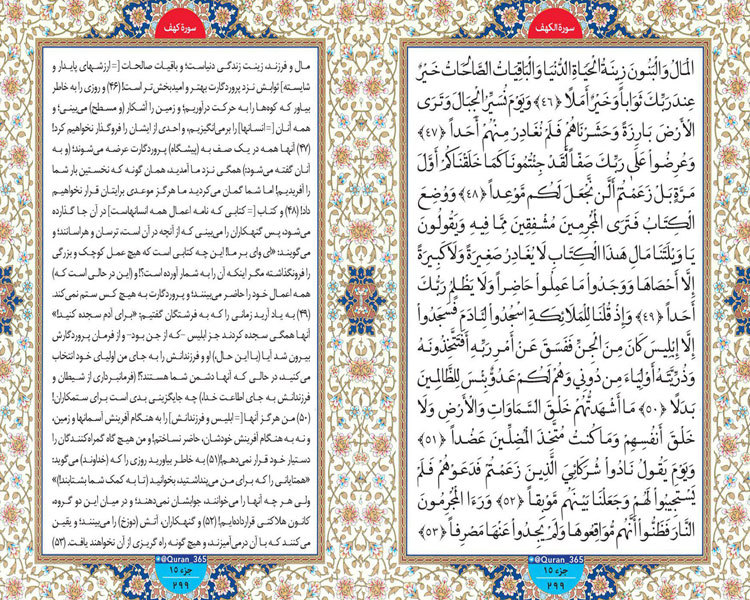 سورة الكهف
الْمَالُ وَالْبَنُونَ زِينَةُ الْحَيَاةِ الدُّنْيَا وَالْبَاقِيَاتُ الصَّالِحَاتُ خَيْرٌ
عِندَ رَبِّكَ ثَوَاباً وَخَيْرٌ أَمَلاً ﴿٤٦﴾ وَيَوْمَ نُسَيِّرُ الْجِبَالَ وَتَرَى
الْأَرْضَ بَارِزَةً وَحَشَرْنَاهُمْ فَلَمْ نُغَادِرْ مِنْهُمْ أَحَداً ﴿٤٧﴾
وَعُرِضُوا عَلَى رَبِّكَ صَفّاً لَّقَدْ جِئْتُمُونَا كَمَا خَلَقْنَاكُمْ أَوَّلَ
مَرَّةٍ بَلْ زَعَمْتُمْ أَلَّن نَّجْعَلَ لَكُم مَّوْعِداً ﴿٤٨﴾ وَوُضِعَ
الْكِتَابُ فَتَرَى الْمُجْرِمِينَ مُشْفِقِينَ مِمَّا فِيهِ وَيَقُولُونَ
يَا وَيْلَتَنَا مَالِ هَذَا الْكِتَابِ لَا يُغَادِرُ صَغِيرَةً وَلَا كَبِيرَةً
إِلَّا أَحْصَاهَا وَوَجَدُوا مَا عَمِلُوا حَاضِراً وَلَا يَظْلِمُ رَبُّكَ
أَحَداً ﴿٤٩﴾ وَإِذْ قُلْنَا لِلْمَلَائِكَةِ اسْجُدُوا لِآدَمَ فَسَجَدُوا
إِلَّا إِبْلِيسَ كَانَ مِنَ الْجِنِّ فَفَسَقَ عَنْ أَمْرِ رَبِّهِ أَفَتَتَّخِذُونَهُ
وَذُرِّيَّتَهُ أَوْلِيَاءَ مِن دُونِي وَهُمْ لَكُمْ عَدُوٌّ بِئْسَ لِلظَّالِمِينَ
بَدَلاً ﴿٥٠﴾ مَا أَشْهَدتُّهُمْ خَلْقَ السَّمَاوَاتِ وَالْأَرْضِ وَلَا
خَلْقَ أَنفُسِهِمْ وَمَا كُنتُ مُتَّخِذَ الْمُضِلِّينَ عَضُداً ﴿٥١﴾
وَيَوْمَ يَقُولُ نَادُوا شُرَكَائِيَ الَّذِينَ زَعَمْتُمْ فَدَعَوْهُمْ فَلَمْ
يَسْتَجِيبُوا لَهُمْ وَجَعَلْنَا بَيْنَهُم مَّوْبِقاً ﴿٥٢﴾ وَرَءَا الْمُجْرِمُونَ
النَّارَ فَظَنُّوا أَنَّهُم مُّوَاقِعُوهَا وَلَمْ يَجِدُوا عَنْهَا مَصْرِفاً ﴿٥٣﴾
@Quran_365
جزء ١٥
٢٩٩
سوره کهف
مال و فرزند، زینت زندگی دنیاست؛ و باقیات صالحات [= ارزشهای پایدار و
شایسته] ثوابش نزد پروردگارت بهتر و امیدبخش‌تر است! (۴۶) و روزی را به خاطر
بیاور که کوه‌ها را به حرکت درآوریم؛ و زمین را آشکار (و مسطح) می‌بینی؛ و
همه آنان [= انسانها] را برمی‌انگیزیم، و احدی از ایشان را فروگذار نخواهیم کرد!
(۴۷) آنها همه در یک صف به (پیشگاه) پروردگارت عرضه می‌شوند؛ (و به
آنان گفته می‌شود:) همگی نزد ما آمدید، همان گونه که نخستین بار شما
را آفریدیم! اما شما گمان می‌کردید ما هرگز موعدی برایتان قرار نخواهیم
داد! (۴۸) و کتاب [= کتابی که نامه اعمال همه انسانهاست] در آن جا گذارده
می‌شود، پس گنهکاران را می‌بینی که از آنچه در آن است، ترسان و هراسانند؛ و
می‌گویند: «ای وای بر ما! این چه کتابی است که هیچ عمل کوچک و بزرگی
را فرونگذاشته مگر اینکه آن را به شمار آورده است؟! و (این در حالی است که)
همه اعمال خود را حاضر می‌بینند؛ و پروردگارت به هیچ کس ستم نمی‌کند.
(۴۹) به یاد آرید زمانی را که به فرشتگان گفتیم: «برای آدم سجده کنید!»
آنها همگی سجده کردند جز ابلیس -که از جن بود- و از فرمان پروردگارش
بیرون شد آیا (با این حال،) او و فرزندانش را به جای من اولیای خود انتخاب
می‌کنید، در حالی که آنها دشمن شما هستند؟! (فرمانبرداری از شیطان و
فرزندانش به جای اطاعت خدا،) چه جایگزینی بدی است برای ستمکاران!
(۵۰) من هرگز آنها [= ابلیس و فرزندانش] را به هنگام آفرینش آسمانها و زمین،
و نه به هنگام آفرینش خودشان، حاضر نساختم! و من هیچ گاه گمراه‌کنندگان را
دستیار خود قرار نمی‌دهم! (۵۱) به خاطر بیاورید روزی را که (خداوند) می‌گوید:
«همتایانی را که برای من می‌پنداشتید، بخوانید (تا به کمک شما بشتابند!)»
ولی هر چه آنها را می‌خوانند، جوابشان نمی‌دهند؛ و در میان این دو گروه،
کانون هلاکتی قرارداده‌ایم! (۵۲) و گنهکاران، آتش (دوزخ) را می‌بینند؛ و یقین
می‌کنند که با آن درمی‌آمیزند، و هیچ گونه راه گریزی از آن نخواهند یافت. (۵۳)
@Quran_365
جزء ۱۵
۲۹۹